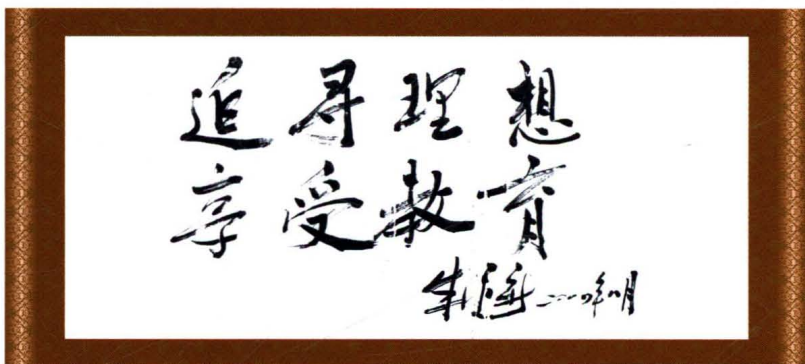 追寻理想
享受教育
朱永新 二〇〇四年八月